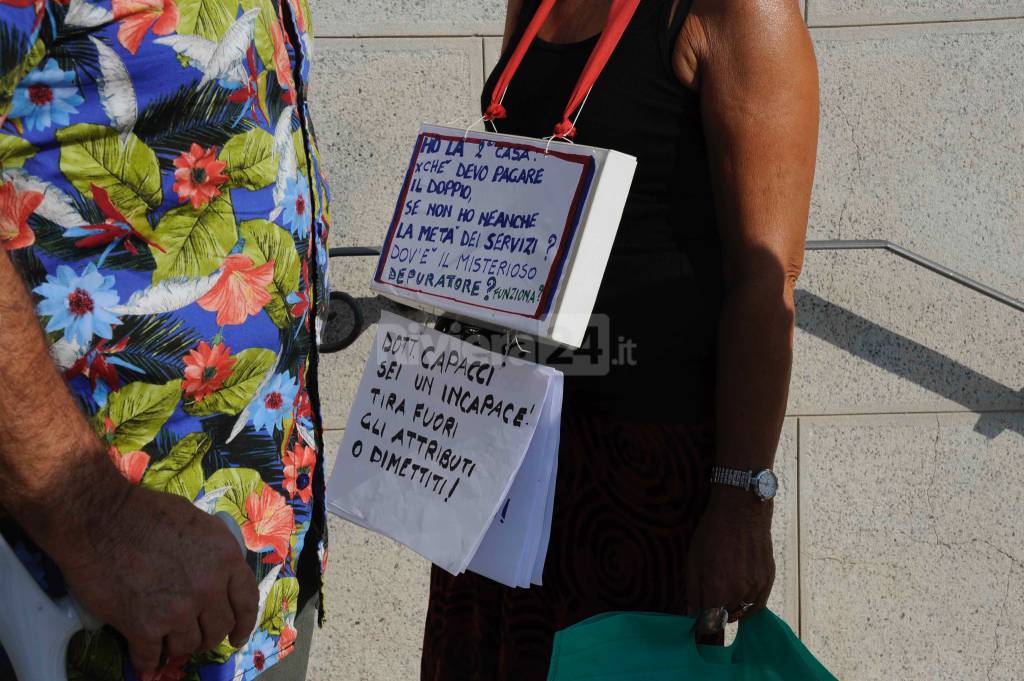 HO LA 2ª CASA.
XCHE' DEVO PAGARE
IL DOPPIO,
SE NON HO NEANCHE
LA META' DEI SERVIZI?
DOV'E' IL MISTERIOSO
DEPURATORE? FUNZIONA?
Riviera24.it
DOTT. CAPACCI
SEI UN INCAPACE!
TIRA FUORI
GLI ATTRIBUTI
O DIMETTITI!